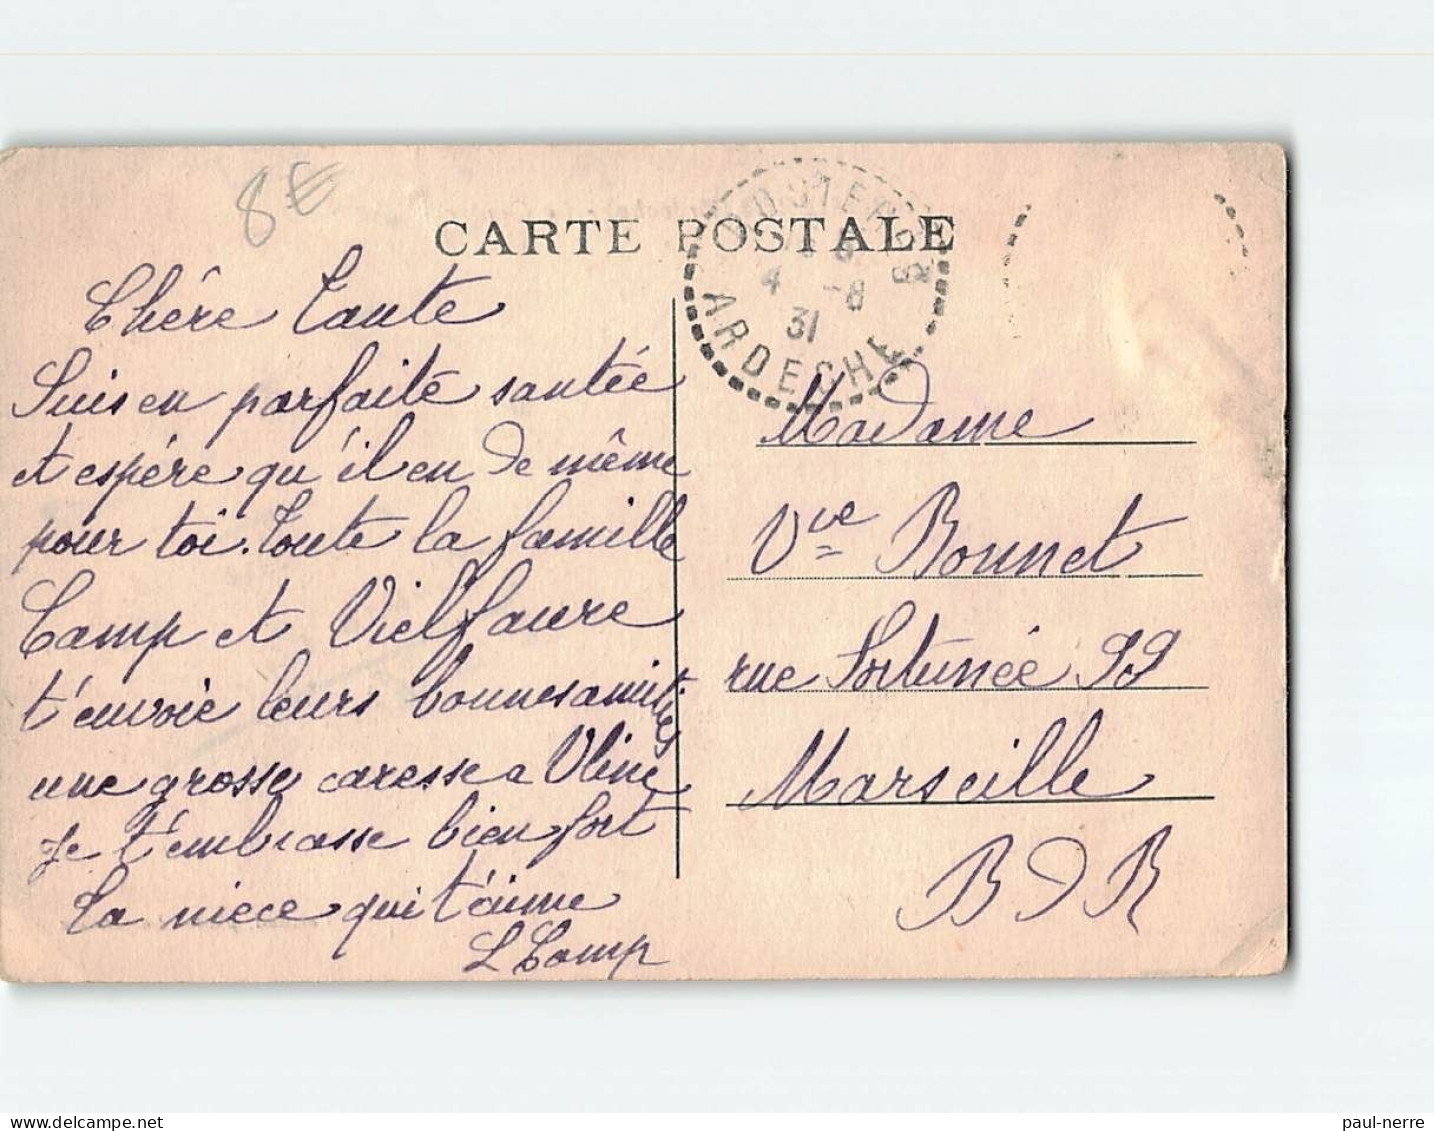 8€
CARTE POSTALE
4 -8
31
ARDECHE
Chère Tante
Suis en parfaite santée
et espère qu'il en de même
pour toi. Toute la famille
Camp et Vielfaure
t'envoie leurs bonnes amitiés
une grosse caresse a Oline
Je t'embrasse bien fort
Ta niece qui t'aime
L Camp
Madame
Vve Bonnet
rue Fortunée 99
Marseille
B D R
paul-nerre